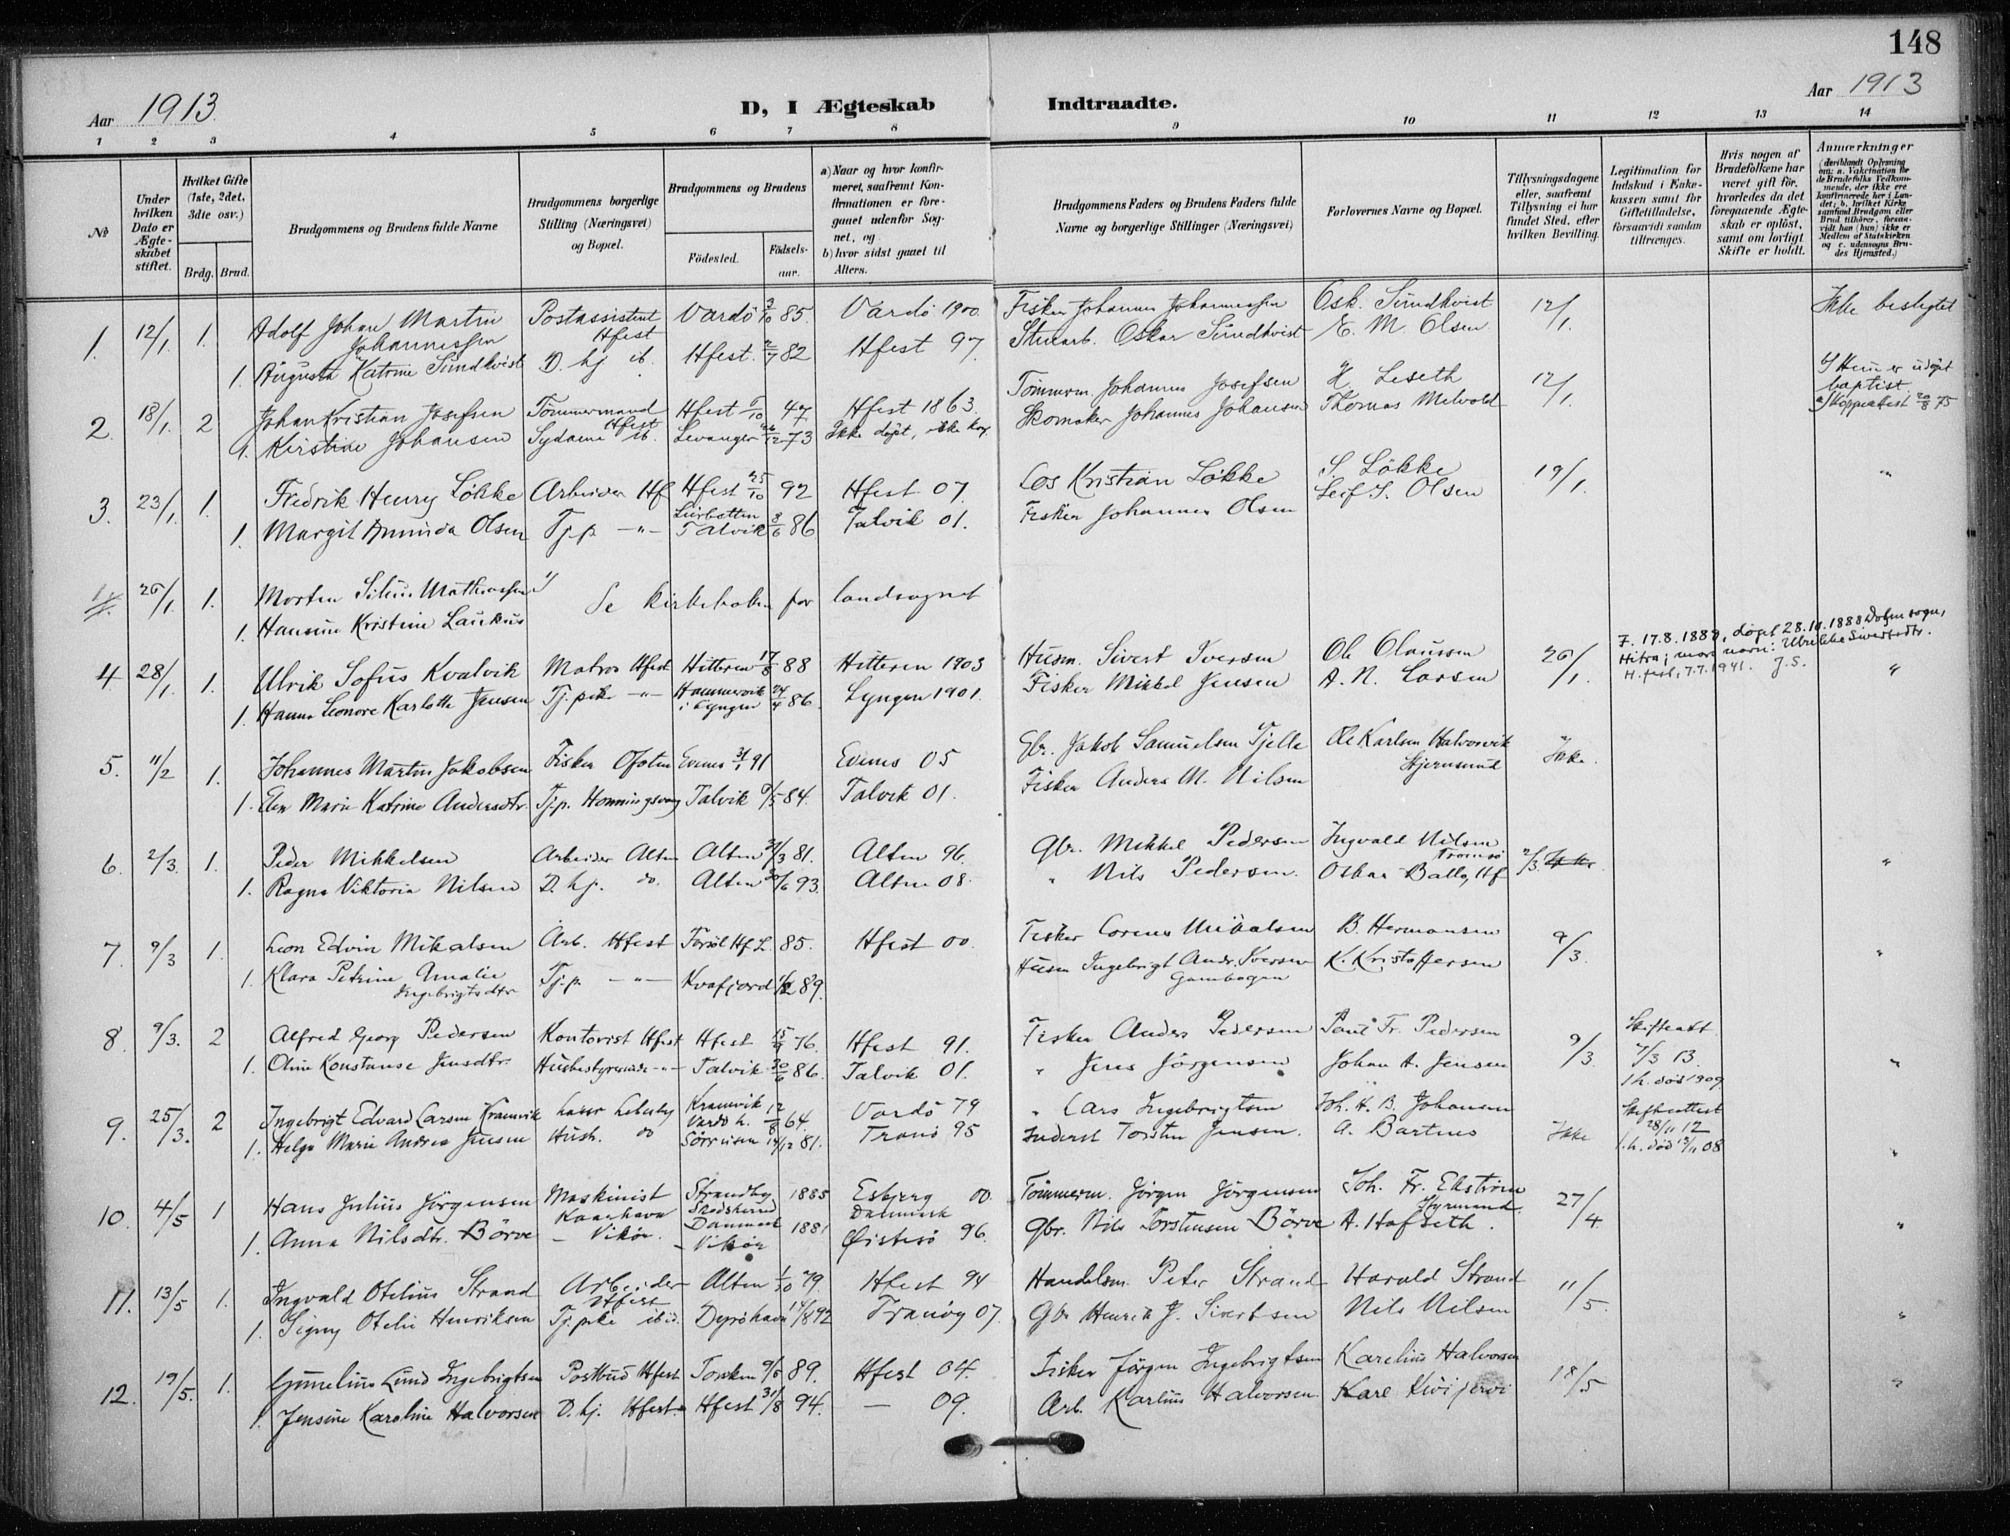 148
Aar 1913.
D, I Ægteskab Indtraadte.
Aar 1913
1 2 3 4 5 6 7 8 9 10 11 12 13 14
No
Under hvilken Dato er Ægteskabet stiftet.
Hvilket Gifte (1ste, 2det, 3die osv.)
Brdg. Brud.
Brudgommens og Brudens fulde Navne
Brudgommens borgerlige Stilling (Næringsvei) og Bopæl.
Brudgommens og Brudens
Födested.
Födselsaar.
a) Naar og hvor konfirmeret, saafremt Konfirmationen er foregaaet udenfor Sognet, og
b) hvor sidst gaaet til Alters.
Brudgommens Faders og Brudens Faders fulde Navne og borgerlige Stillinger (Næringsvei)
Forlovernes Navne og Bopæl.
Tillysningsdagene eller, saafremt Tillysning ei har fundet Sted, efter hvilken Bevilling.
Legitimation for Indskud i Enkekassen samt for Giftetilladelse, forsaavidt saadan tiltrænges.
Hvis nogen af Brudefolkene har været gift för, hvorledes da det foregaaende Ægteskab er oplöst, samt om lovligt Skifte er holdt.
Anmærkninger
(deriblandt Oplysning om: a. Vakcination for de Brudefolks Vedkommende, der ikke ere konfirmerede her i Landet; b. hvilket Kirkesamfund Brudgom eller Brud tilhörer, forsaavidt han (hun) ikke er Medlem af Statskirken og c. udensogns Brudes Hjemsted.)
1. 12/1. 1. Adolf Johan Martin Johannessen Postassistent Hfest Vardö 3/10 85. Vardö 1900. Fisker Johannes Johannessen Osk. Sundkvist 12/1. Ikke beslegtet
1. Augusta Katrine Sundkvist D. hj. ib. Hfest. 2/7 82 Hfest 97. Stuearb. Oskar Sundkvist E. M. Olsen
2. 18/1. 2 Johan Kristian Josefsen Tömmermand Hfest Hfest 5/10 47 Hfest 1863. Tömmerm. Johannes Josefsen H Leseth 12/1. b) Hun er udöpt baptist.
1. Kirstine Johansen Sydame ib. Levanger 26/12 73 Ikke döpt, ikke konf. Skomaker Johannes Johansen Thomas Melvold a) Koppeattest 20/8 75
3. 23/1. 1. Fredrik Henry Lökke Arbeider Hf Hfest 25/10 92 Hfest 07. Los Kristian Lökke S. Lökke 19/1. "
1. Margit Aminda Olsen Tj.p. -"- Leirbotten Talvik 3/6 86 Talvik 01. Fisker Johannes Olsen Leif S. Olsen
26/1. 1. Morten Mathiassen Se kirkeboken for landsognet
1. Hansine Kristine Laukus
4 28/1. 1. Ulrik Sofus Kvalvik Matros Hfest Hitteren 17/8 88 Hitteren 1903 Husm. Sivert Iversen Ole Olaussen 26/1. F. 17.8.1888, döpt 28.10.1888 Dolm sogn, Hitra; mors navn: Ulrikke Sivertsdtr. H.fest, 7.7.1941. J.S. "
1. Hanna Leonore Karlotte Jensen Tj.pike -"- Hammervik i Lyngen 24/4 86. Lyngen 1901. Fisker Mikkel Jensen A. N. Larsen
5. 11/2 1. Johannes Martin Jakobsen Fisker Ofoten Evenes 31/1 91 Evenes 05 Gbr. Jakob Samuelsen Tjelle Ole Karlsen Halvorvik Stjernsund Ikke.
1. Elen Marie Katrine Andersdtr. Tj.p. Honningsvaag Talvik 9/5 84. Talvik 01. Fisker Anders M. Nilsen
6. 2/3. 1. Peder Mikkelsen Arbeider Alten Alten 21/3 81. Alten 96. Gbr. Mikkel Pedersen Ingvald Nilsen Tromsö 2/3. "
1. Ragna Viktoria Nilsen D. hj. do. Alten 30/6 93. Alten 08. " Nils Pedersen. Oskar Ballo, Hf
7. 9/3 1. Leon Edvin Mikalsen Arb. Hfest Forsöl Hf.L. 85. Hfest 00. Fisker Corens Mikalsen B. Hermansen 9/3. "
1. Klara Petrine Amalie Ingebrigtsdtr. Tj.p. -"- Kvafjord 89. Husm Ingebrigt Andr. Iversen Gambogen K. Kristoffersen
8. 9/3. 2 Alfred Georg Pedersen Kontorist Hfest Hfest 15/9 76. Hfest 91. Fisker Anders Pedersen Paul Fr. Pedersen 9/3. Skifteatt. 7/3 13. 1.h. död 1909 "
1. Oline Konstanse Jensdtr. Husbestyrerinde -"- Talvik 30/6 86. Talvik 01. " Jens Jörgensen Johan A. Jensen
9. 25/3. 2 Ingebrigt Edvard Larsen Kramvik Lærer Lebesby Kramvik Vardö L. 12/8 64. Vardö 79 " Lars Ingebrigtsen Joh. H. B. Johansen Ikke Skifteattest 28/11 12 1.h. död 13/11 08 "
1. Helga Marie Andrea Jensen Hush. do Sörreisen 14/12 81. Tranö 95 Inderst Torsten Jensen. A. Bartnes
10. 4/5 1 Hans Julius Jörgensen Maskinist Kaaehavn Strandby Skodsherred Danmark 1885 Esbjerg 00. Danmark Tömmerm. Jörgen Jörgensen Joh. Fr. Ekström Styrmand. 27/4 "
1. Anna Nilsdtr. Börve - Vikör. - Vikör 1881 Østesö 96. Gbr. Nils Torstensen Börve A. Hofseth.
11. 13/5 1. Ingvald Otelius Strand Arbeider Hfest Alten 1/10 79 Hfest 94 Handelsm. Peter Strand Harald Strand 11/5. "
1. Signy Otelie Henriksen Tj.pike ibid. Dyröhavn 17/8 92 Tranöy 07. Gbr Henrik J. Sivertsen Nils Nilsen
12. 19/5. 1. Gunelius Lund Ingebrigtsen Postbud Hfest Torsken 9/5 89. Hfest 04. Fisker Jörgen Ingebrigtsen Karelius Halvorsen 18/5 "
1. Jensine Karoline Halvorsen D. hj. Hfest. Hfest 31/8 94. — 09. Arb. Karlius Halvorsen Kare Kivijervi